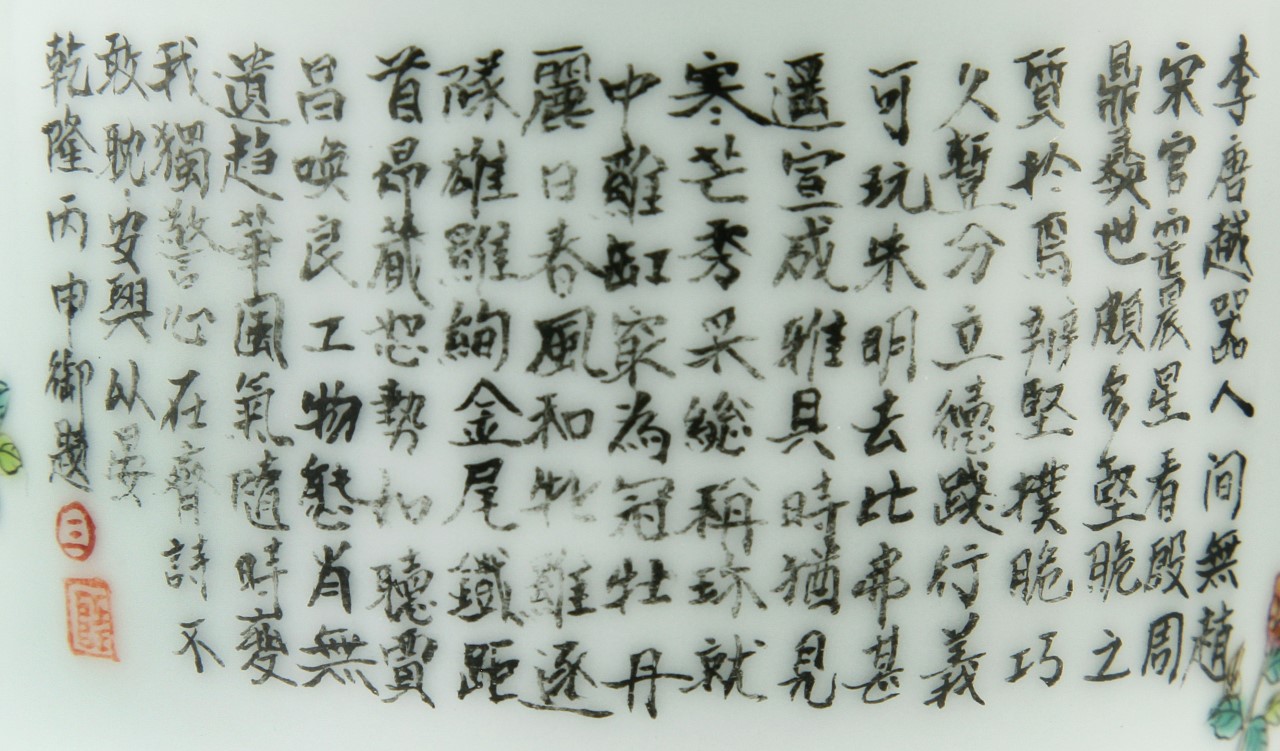 李唐越器人间無趙
宋官窑晨星看殷周
鼎彝世頗多堅脆之
質於焉辨堅撲脆巧
久暫分立德踐行義
可玩朱明去比弗甚
遥宣成雅具時猶見
寒芒秀采總稱珎就
中雞缸最為冠牡丹
麗日春風和牝雞逐
隊雄雞絢金尾鐵距
首昂藏怒勢如聽賈
昌喚良工物態肖無
遺趋華風氣隨時變
我獨警心在齊詩不
敢耽安興以晏
乾隆丙申御题
三